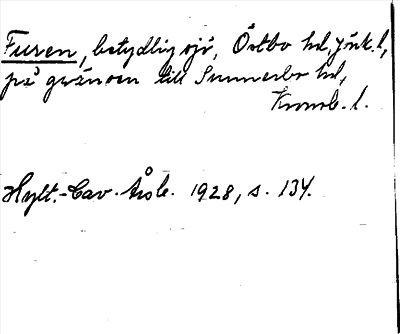 Furen, betydlig sjö, Östbo hd, Jönk. l,
på gränsen till Sunnerbo hd,
Kronob. l.
Hylt.-Cav. Årsb. 1928, s. 134.